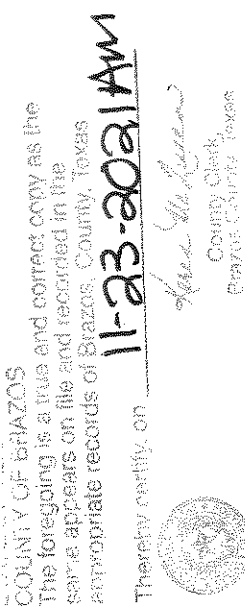 COUNTY OF BRAZOS
The foregoing is a true and correct copy as the
same appears on file and recorded in the
appropriate records of Brazos County, Texas
I hereby certify, on 11-23-2021 AM
County Clerk,
Brazos County Texas